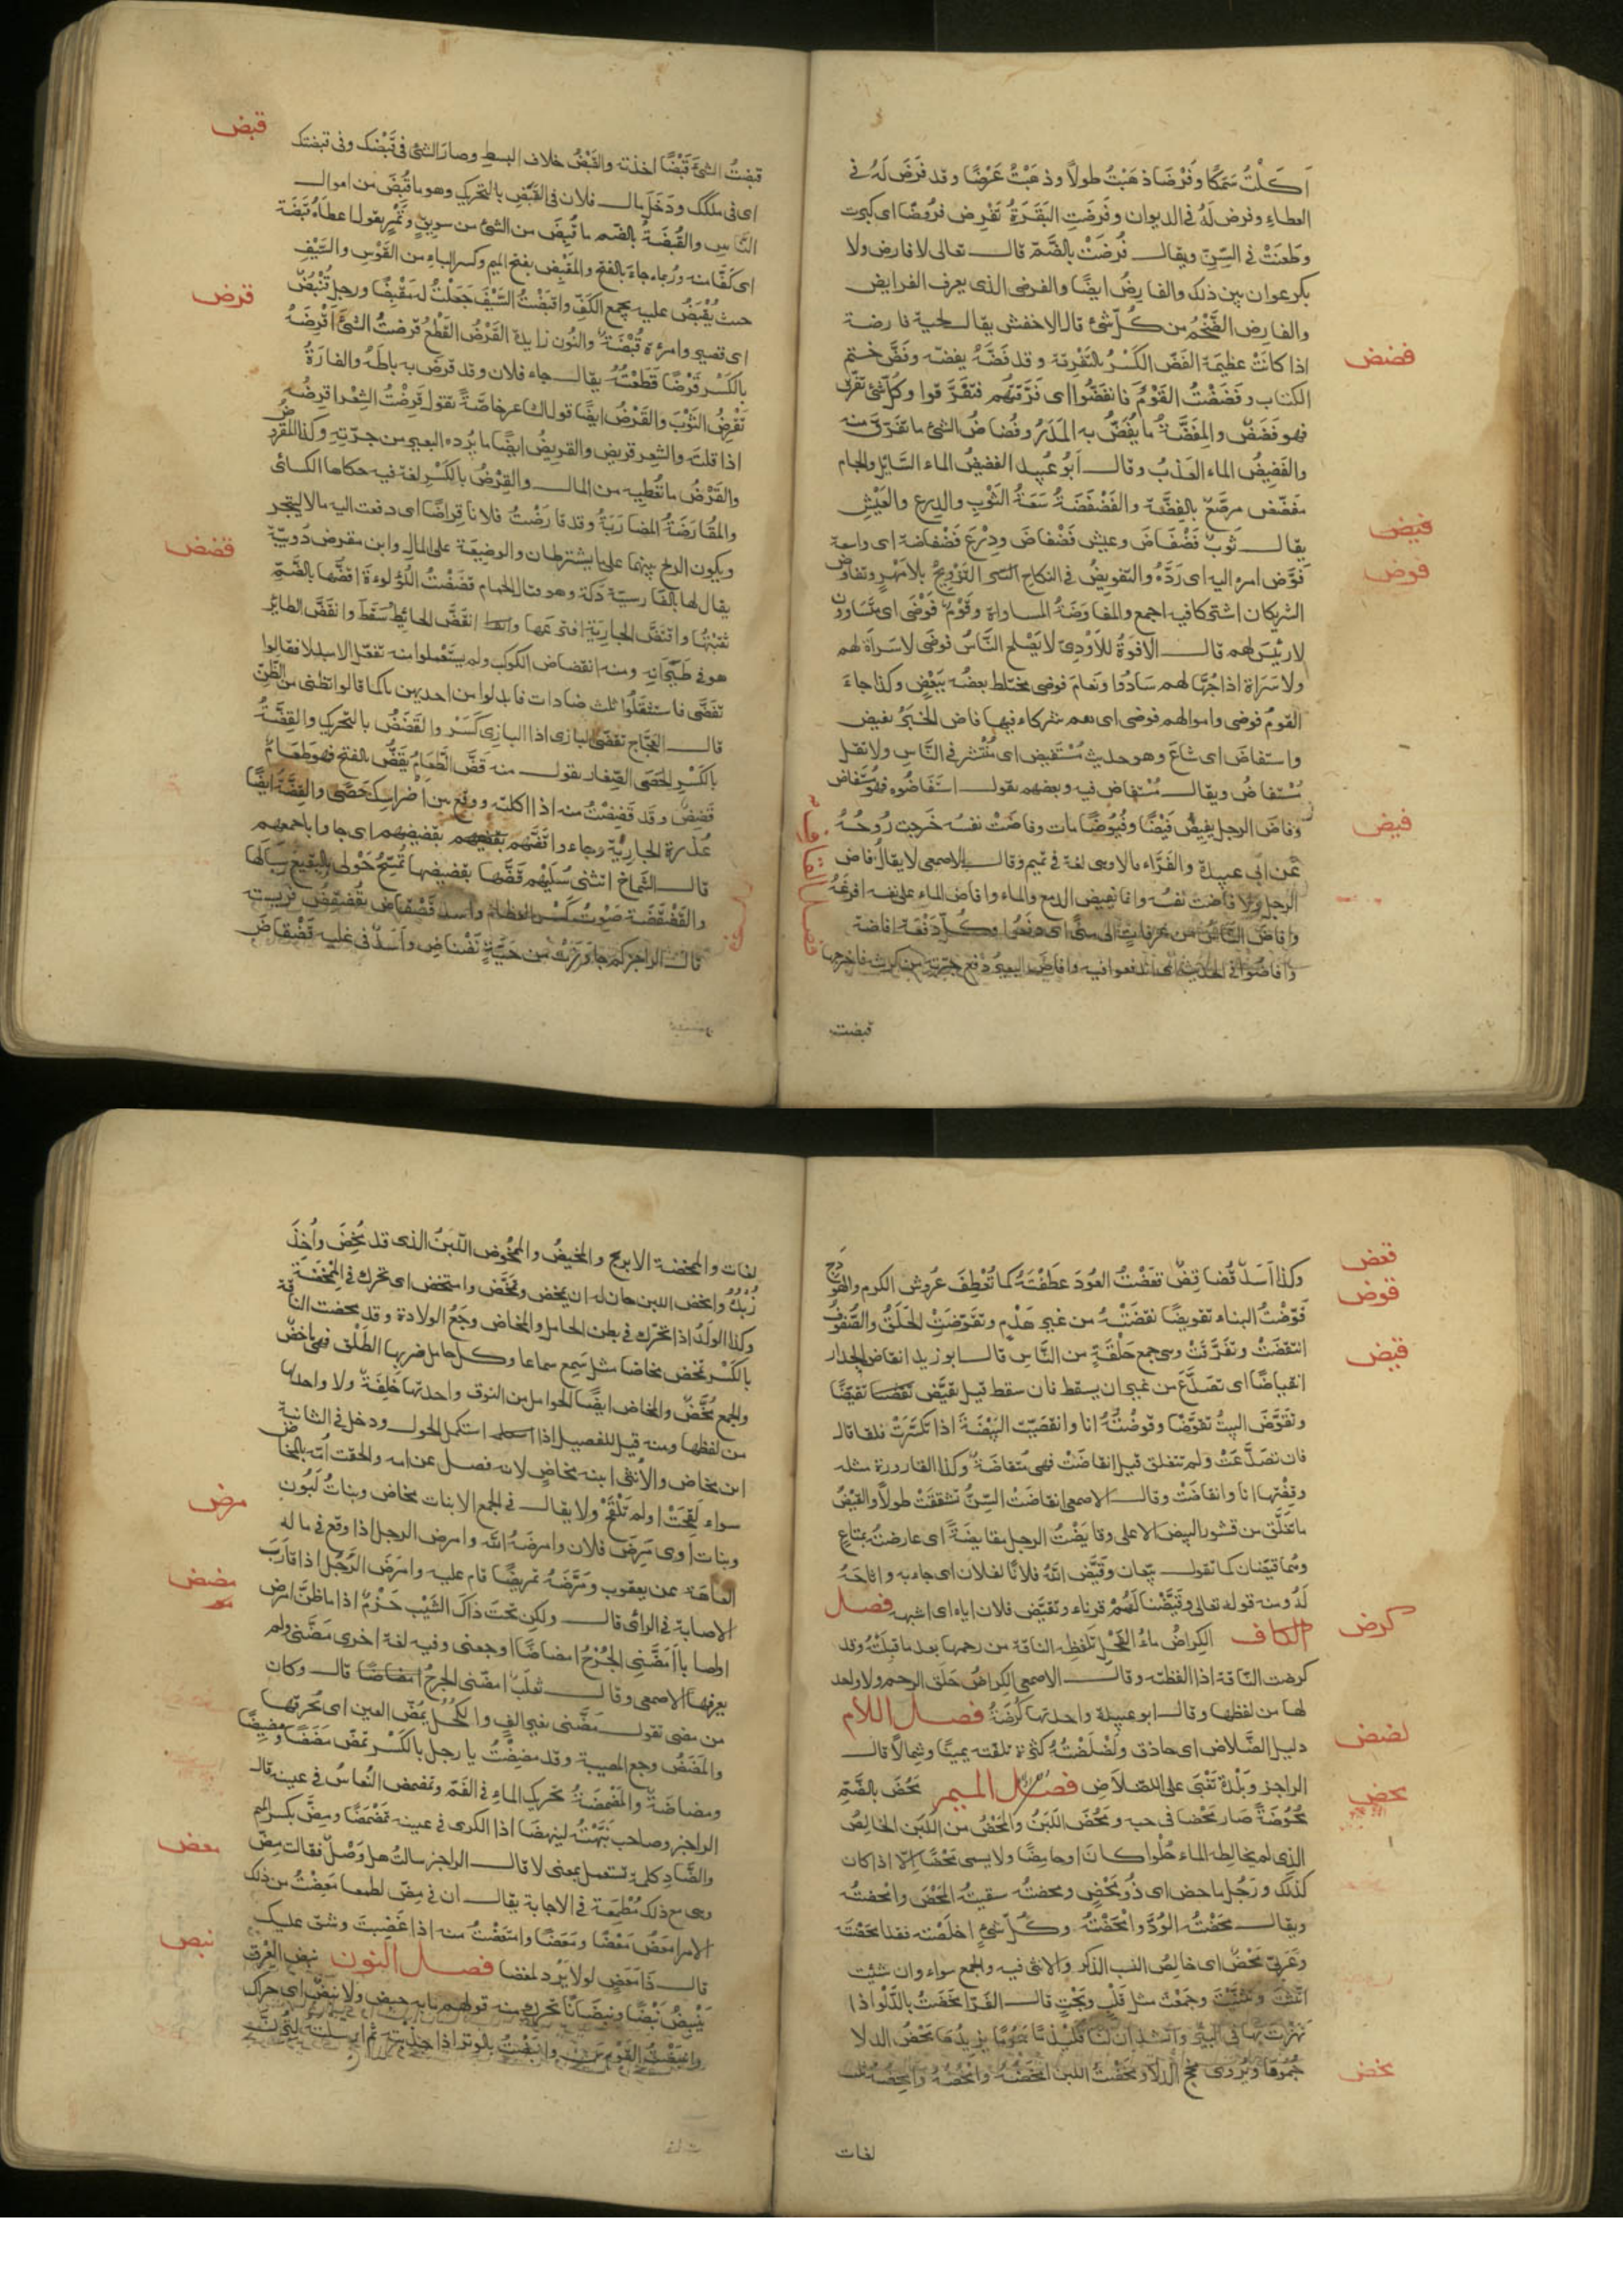 اَكَلْتُ سَمَكًا وفَرْضًا ذهَبْتُ طولاً وذهَبْتُ عَرْضًا وقد فَرَضَ لَهُ في
العطاءِ وفرض لَهُ في الديوان وفَرَضَتِ البَقَرَةُ تَفْرِض فرُوضًا اى كبرت
وطَعَنَتْ في السِّنِّ ويقال فُرضَتْ بالضّمّ قال تعالى لا فارض ولا
بكر عوان بين ذلك والفارِضُ ايضًا والفرضى الذى يعرف الفرايض
والفارِض الضَّخْمُ من كُلّ شئ قال الاخفش يقال لحية فارضة
فضض
اذا كانَتْ عظيمَةَ الفَضّ الكَسْرُ بالتَفْرِقة وقد فَضَّهُ يفضّه وفَضَّ ختم
الكتاب وفَضَضْتُ القَوْمَ فانفَضُّوا اى فَرَّقتهم فتفَرَّقوا وكُلّ شئ تفرّق
فهو فَضَضٌ والمِفَضَّةُ ما يُفَضّ به المَدَرُ وفُضاضُ الشئ ما تفَرّق منه
والفَضِيضُ الماء العَذبُ وقال اَبُو عُبيد الفضيضُ الماء السَّايل ولجام
مفَضّض مرصَّعٌ بالفِضَّة والفَضْفَضَةُ سَعَةُ الثَوْبِ والدِرع والعَيْشِ
فيض
يقال ثوبٌ فَضْفَاضٌ وعيش فَضْفاضٌ ودِرْعَ فَضْفاضة اى واسعة
فوض
فوّض امره اليه اى رَدَّهُ والتفويضُ في النكاح التزويجُ بلا مَهْرٍ وتفاوض
الشريكان اشتركا فيه اجمع والمفاوَضَةُ المساواة وقَوْمٌ فَوْضَى اى متسَاوون
لا رئيسَ لهم قال الافوَهُ الاَوْدِىّ لا يَصْلح النَّاسُ فوضَى لا سَراةَ لهم
ولا سَراة اذا جُهَّالهم سَادُوا ونَعام فوضى مختلط بعضُه ببَعْضٍ وكذا جاءَ
القومُ فوضى واموالهم فوضى اى هم شركاء فيها فاض الخبَرُ يفيض
واستفاضَ اى شاعَ وهو حديث مُسْتَفيض اى مُنْتشر في النَّاسِ ولا تقل
مُسْتفاضُ ويقال مُسْتفاض فيه وبعضهم يقول استَفَاضُوه فهو مُسْتَفاض
فيض
وفاضَ الرجل يفيضُ فَيْضًا وفُيوُضًا مات وفاضَتْ نفسُه خرجت رُوحُهُ
عَن ابى عبيدة والفَرَّاء قالا وهى لغة في تميم وقال الاصمعى لا يقال فاض
الرجل ولا فاضت نفسُه وانما يفيض الدمع والماء وافاضَ الماء على نفسه افرغَهُ
وافاضَ النَّاسُ من عرفاتٍ الى منًى اى دفَعُوا وكُلّ دَفعَة افاضة
وافاضُوا في الحديث اى اندفعوا فيه وافاضَ البعيرُ دفع جرّته من كرشه فاخرجها
فصل القاف
قبضت
قبض
قبضتُ الشئَ قَبْضًا اخذته والقَبْضُ خلاف البسط وصارَ الشئ فى قَبْضك وفى قبضتك
اى فى ملكك ودَخَلَ مال فلان فى القَبَضِ بالتحريك وهو ما قُبِضَ من اموال
النَّاسِ والقُبْضَةُ بالضّم ما قُبِضَ من الشئ من سويقٍ وتَمْرٍ يقول اعطاهُ قُبْضَة
اى كَفًّا منه ورُبما جاءَ بالفتح والمَقْبِض بفتح الميم وكسر الباء من القَوْسِ والسَّيْفِ
حيث يُقْبَضُ عليه بجمع الكَفِّ واقبَضْتُ السَّيْفَ جَعَلْتُ له مَقْبِضًا ورجل قُنْبُضٌ
قرض
اى قصير وامرأة قُنْبُضَةٌ والنُون زايدة القَرْضُ القَطْعُ قرضتُ الشَّئَ اَقْرِضُهُ
بالكَسْر قَرْضًا قَطَعْتُهُ يقال جاء فلان وقد قرَضَ به باطَهُ والفارَةُ
تَقْرِضُ الثَوْبَ والقَرْضُ ايضًا قولك الشعر خاصَّةً تقول قَرضْتُ الشِعْرَ اقرضُه
اذا قلتَه والشعر قريض والقريضُ ايضًا ما يُردّه البعير من جرّتِه وكذا المَقروض
والقَرْضُ ما تُعْطِيه من المال والقِرْضُ بالكَسْر لغة فيه حكاها الكسائى
والمُقارَضَةُ المضارَبَةُ وقد قارَضْتُ فلانا قِراضًا اى دفعت اليه مالا ليتجر
ويكون الربح بينهما على ما يشترطان والوضيعَة على المال وابن مقرض دُوَيبّة
قضض
يقال لها بالفارسيّة دَلَة وهو قتال الحمام قَضَضْتُ اللُؤلؤةَ اقضُّها بالضَمّ
ثقبْتُها واقتَضَّ الجارِيَة افترعها انقَضَّ الحايط سَقَطَ وانقَضَّ الطاير
هوى في طَيَرَانِه ومنه انقضاض الكواكب ولم يستَعْملوا منه تفعّل الا مبدلا قالوا
تقَضَّى فاستثقَلُوا ثلث ضادات فابدلوا من احديهن ياء كما قالوا تظنى من الظَنّ
قال العجَّاج تقضّى البازى اذا البازى كَسَرْ والقَضَضُ بالتحريك والقِضَّةُ
بالكَسْر الحَصَى الصِغار يقول منه قَضَّ الطَعَامُ يَقَضّ بالفتح فهو طعَامٌ
قَضِضٌ وقد قَضِضْتُ منه اذا اكلته ووقع بين اضراسِك حَصًى والقِضَّةُ ايضًا
عُذرة الجارِيَة وجاءوا قَضَّهم بقَضِيضِهم اى جاءوا باجمعهم
قال الشَمَّاخ اتتنى سُلَيْم قَضَّها بقضيضها تُمَسِّحُ حَوْلى بالبقيع سِبَالَها
والقَضْقَضَة صَوْتُ كَسْر العظام واسد قَضْقاض يُقَضقِضُ فريسته
قال الراجز كم جاوزَتْ من حَيَّةٍ نَضْناضِ واَسَدٌ فى غيله قَضْقاضِ
قعض
وكذا اَسَدٌ قُضاقِضٌ تعضْتُ العُودَ عَطَفْتَهُ كما تُعْطِفَ عُروُش الكرم والهَوْدج
قوض
قَوّضْتُ البناء تقويضًا نقضَتْهُ من غير هَدْمٍ وتقَوّضَتِ الحَلَقُ والصُفوُفُ
قيض
انتَقَضَتْ وتفَرَّقَتْ وهى جمع حَلْقَةٍ من النَّاسِ قال ابو زيد انقاض الجدار
انقياضًا اى تصَدَّعَ من غير ان يسقط فان سقط قيل تقيَّض تقيّضًا
وتقَوَّضَ البيتُ تقوّضًا وقوضْتُهُ انا وانقضّت البَيْضَةُ اذا تكسَّرَتْ فلقا قال
فان تصَدَّعَتْ ولم تنفلق قيل انقاضَتْ فهى منقاضَةٌ وكذا القارورة مثله
وقِضْتها انا وانقاضَتْ وقال الاصمعى انقاضَتْ السّنُّ تشققتْ طولاً والقَيْضُ
ما تفلَّق من قشور البيض الاعلى وقايَضْتُ الرجل مقايضَةً اى عارضتُه بمتاعٍ
وهُما قيّضان كما تقول بيّعان وقيَّضَ اللّهُ فلانًا لفلان اى جاء به واتاحَهُ
لَهُ ومنه قوله تعالى وقيَّضْنا لَهُمْ قرناء وتقيَّض فلان اباه اى اشبهه فصل
كرض
الكاف الكِراضُ ماءُ الفَحْل تلفِظه الناقة من رحمها بعد ما قبلتْهُ وقد
كرضت النَّاقة اذا لفظتْه وقال الاصمعى الكِراضُ حَلَق الرحم ولا واحد
لها من لفظها وقال ابو عبيدة واحدتها كُرضَةٌ فصل اللام
لضض
دليل لضْلاض اى حاذق ولَضْلَضَتُهُ كثرة تلَفّته يمينًا وشمالاً قال
الراجز وبَلْدة تَغْبَى على اللضْلاَضِ فصل الميم
محض
مَحُضَ بالضَّمّ
مُحُوضَةً صار محْضًا فى حسبه ومَحُضَ اللَّبَنُ والمَحْضُ من اللَبَن الخالِصُ
الذى لم يخالطه الماء حُلْوا كانَ او حامِضًا ولا يسمى محْضًا اِلّا اذا كان
كذلك ورَجُل ماحِض اى ذُو مَحْضٍ ومحضتُه سقيتُه المَحْضَ وامْحَضتُه
ويقال مَحَضْتُه الوُدَّ وامْحَضْتُهُ وكُلّ شئٍ اخلَصْته فقد امْحَضْتَه
وعَرَبىّ مَحْضٌ اى خالِصُ النسب الذكر والانثى فيه والجمع سواء وان شئتَ
انَّثْتَ وثَنَّيْتَ وجمَعْتَ مثل قَلْبٍ وبَحْتٍ قال الفَرّا مَخَضْتُ بالدَّلْو اذا
نَهَزْتَ بها فى البئر وانشد اِنّ لنا قَلَيْذَمًا هَمُومًا يزيدُها مَخْضُ الدلا
مخض
جُمُومًا ويُروَى مَخْجُ الدلا ومخَضْتُ اللبن امْخَضُهُ وامْخُضُهُ وامْخِضُهُ ثلث
لغات
لغات والممخضة الابريج والمخيضُ والممْخُوض اللَّبَنُ الذى قد مُخِضَ وأُخِذَ
زُبْدُهُ وامخض اللبن حان له ان يمخض وتمَخَّض واستمخض اى تحرك فى المِمْخَضَة
وكذا الولَدُ اذا تحَرّك فى بطن الحامل والمخاض وجَعُ الولادة وقد مخضت الناقة
بالكَسْر تمخض مخاضا مثل سَمِعَ سماعا وكل حامل ضربها الطَلْق فهى ماخض
والجمع مُخَّضٌ والمخاض ايضًا الحوامل من النوق واحدتها خَلِفَةٌ ولا واحد لها
من لفظها ومنه قيل للفصيل اذا استكمل الحول ودخل فى الثانية
ابن مخاض والأنثى ابنة مخاضٍ لانه فصل عن امه والحقت اُمّه بالمخاض
سواء لَقِحَتْ او لم تَلْقَحْ ولا يقال فى الجمع الا بنات مخاض وبناتُ لَبُونٍ
مرض
وبنات آوى مَرِضَ فلان وامرضَهُ اللّه وامرض الرجل اذا وقع فى ماله
العاهَة عن يعقوب ومَرَّضَهُ تمريضًا قام عليه وامرَضَ الرَّجُل اذا قارَبَ
مضض
الاصابة فى الرأى قال ولكِن تحْتَ ذاكَ الشَيْب حَزْمٌ اذا ما ظَنَّ امرض
او اصابا اَمَضَّنِى الجُرْحُ امضاضًا اوجعنى وفيه لغة اخرى مَضَّنى ولم
يعرفها الاصمعى وقال ثعلبٌ امضّنى الجرحُ قال وكان
من مضى تقول مَضَّنى بغير الفٍ والكُحْلُ يمُضّ العين اى يُحرقها
والمَضَضُ وجع المصيبة وقد مضِضْتُ يا رجل بالكَسْر تمَضّ مَضَضًا ومَضِيضًا
ومضاضَةً والمَضْمضَةُ تحريك الماء فى الفَم وتمضمض النُعاسُ فى عينه قال
الراجز وصاحب نَبَّهْتُه لينهضَا اذا الكرى فى عينه تَمَضْمَضَا ومِضِّ بكسر الميم
والضَّاد كلمة تستعمل بمعنى لا قال الراجز سالتُ هل وَصْلٌ فقالت مِضّ
معض
وهى مع ذلك مُطْمِعَة فى الاجابة يقال ان فى مِضّ لطمعا مَعِضْتُ من ذلك
الامر امعَضُ مَعْضًا ومَعَضًا وامتَعَضْتُ منه اذا غَضِبتَ وشقّ عليك
نبض
قال ذا مَعَضٍ لولا يَرُد لمعضا فصل النون نبض العِرْق
يَنْبِضُ نَبْضًا ونبضَانًا تحرك ومنه قولهم ما به حبض ولا نَبَضٌ اى حراك
وانبَضْتُ القَوْس وانبَضْتُ بالوتر اذا جذبته ثم ارسلته لِتَرِنَّ